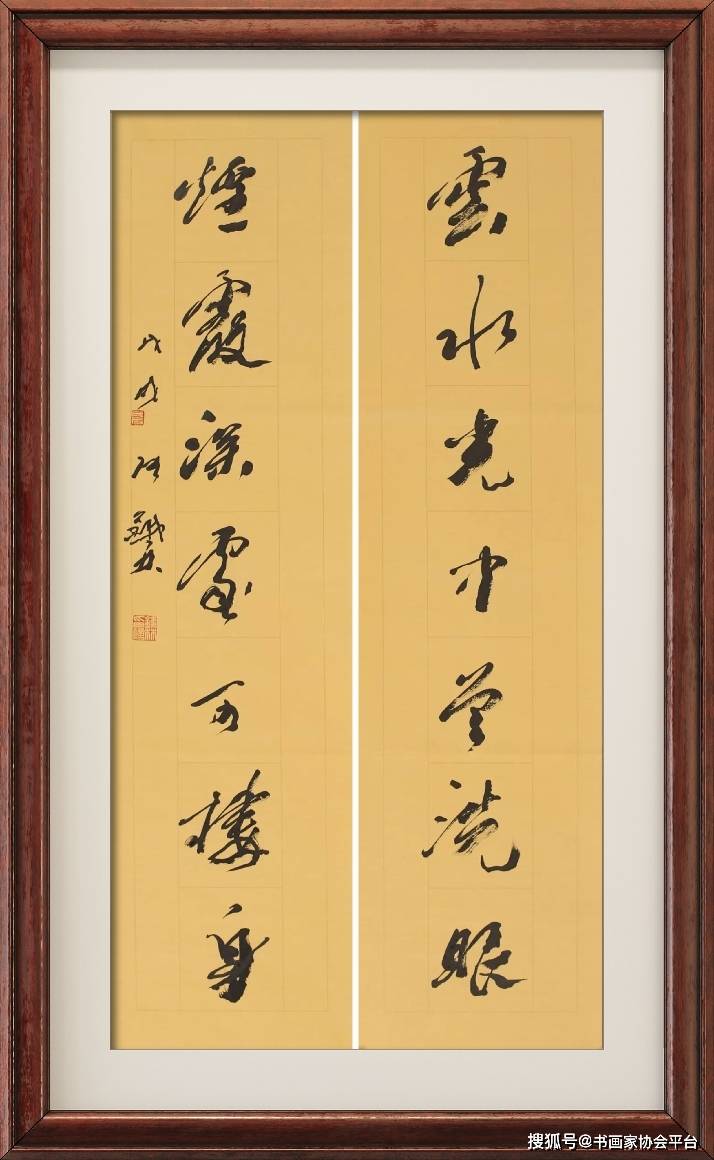 雲水光中曾洗眼
煙霞深處可棲身
戊戌 張鐵林
搜狐号@书画家协会平台